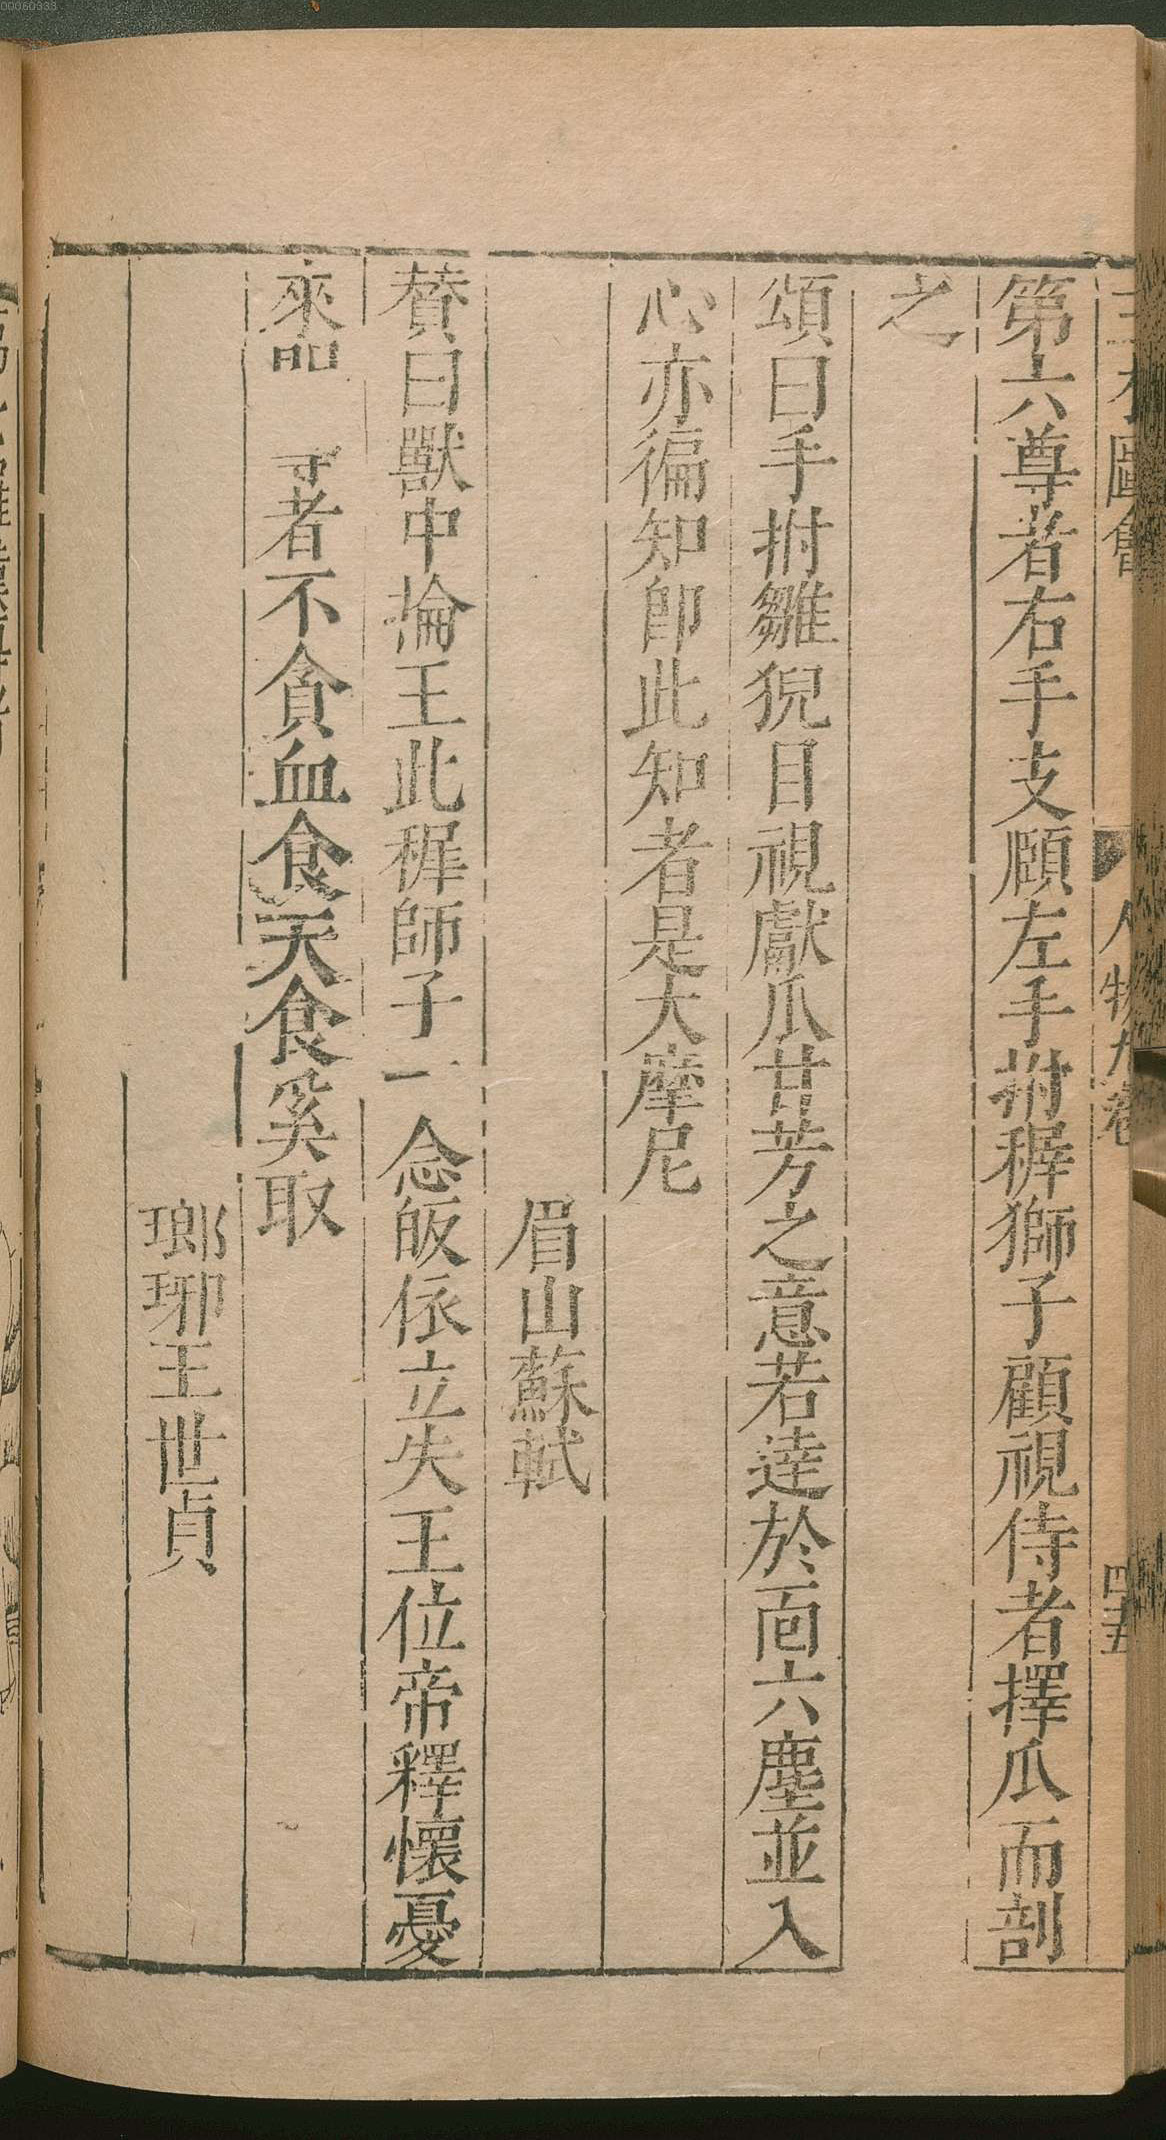 00060333
三才圖會 人物九卷 四五
第六尊者右手支頤左手拊穉獅子顧視侍者擇瓜而剖
之
頌曰手拊雛猊目視獻瓜甘芳之意若達於面六塵並入
心亦徧知卽此知者是大摩尼
眉山蘇軾
賛曰獸中掄王此穉師子一念皈依立失王位帝釋懷憂
來 者不貪血食天食奚取
瑯琊王世貞